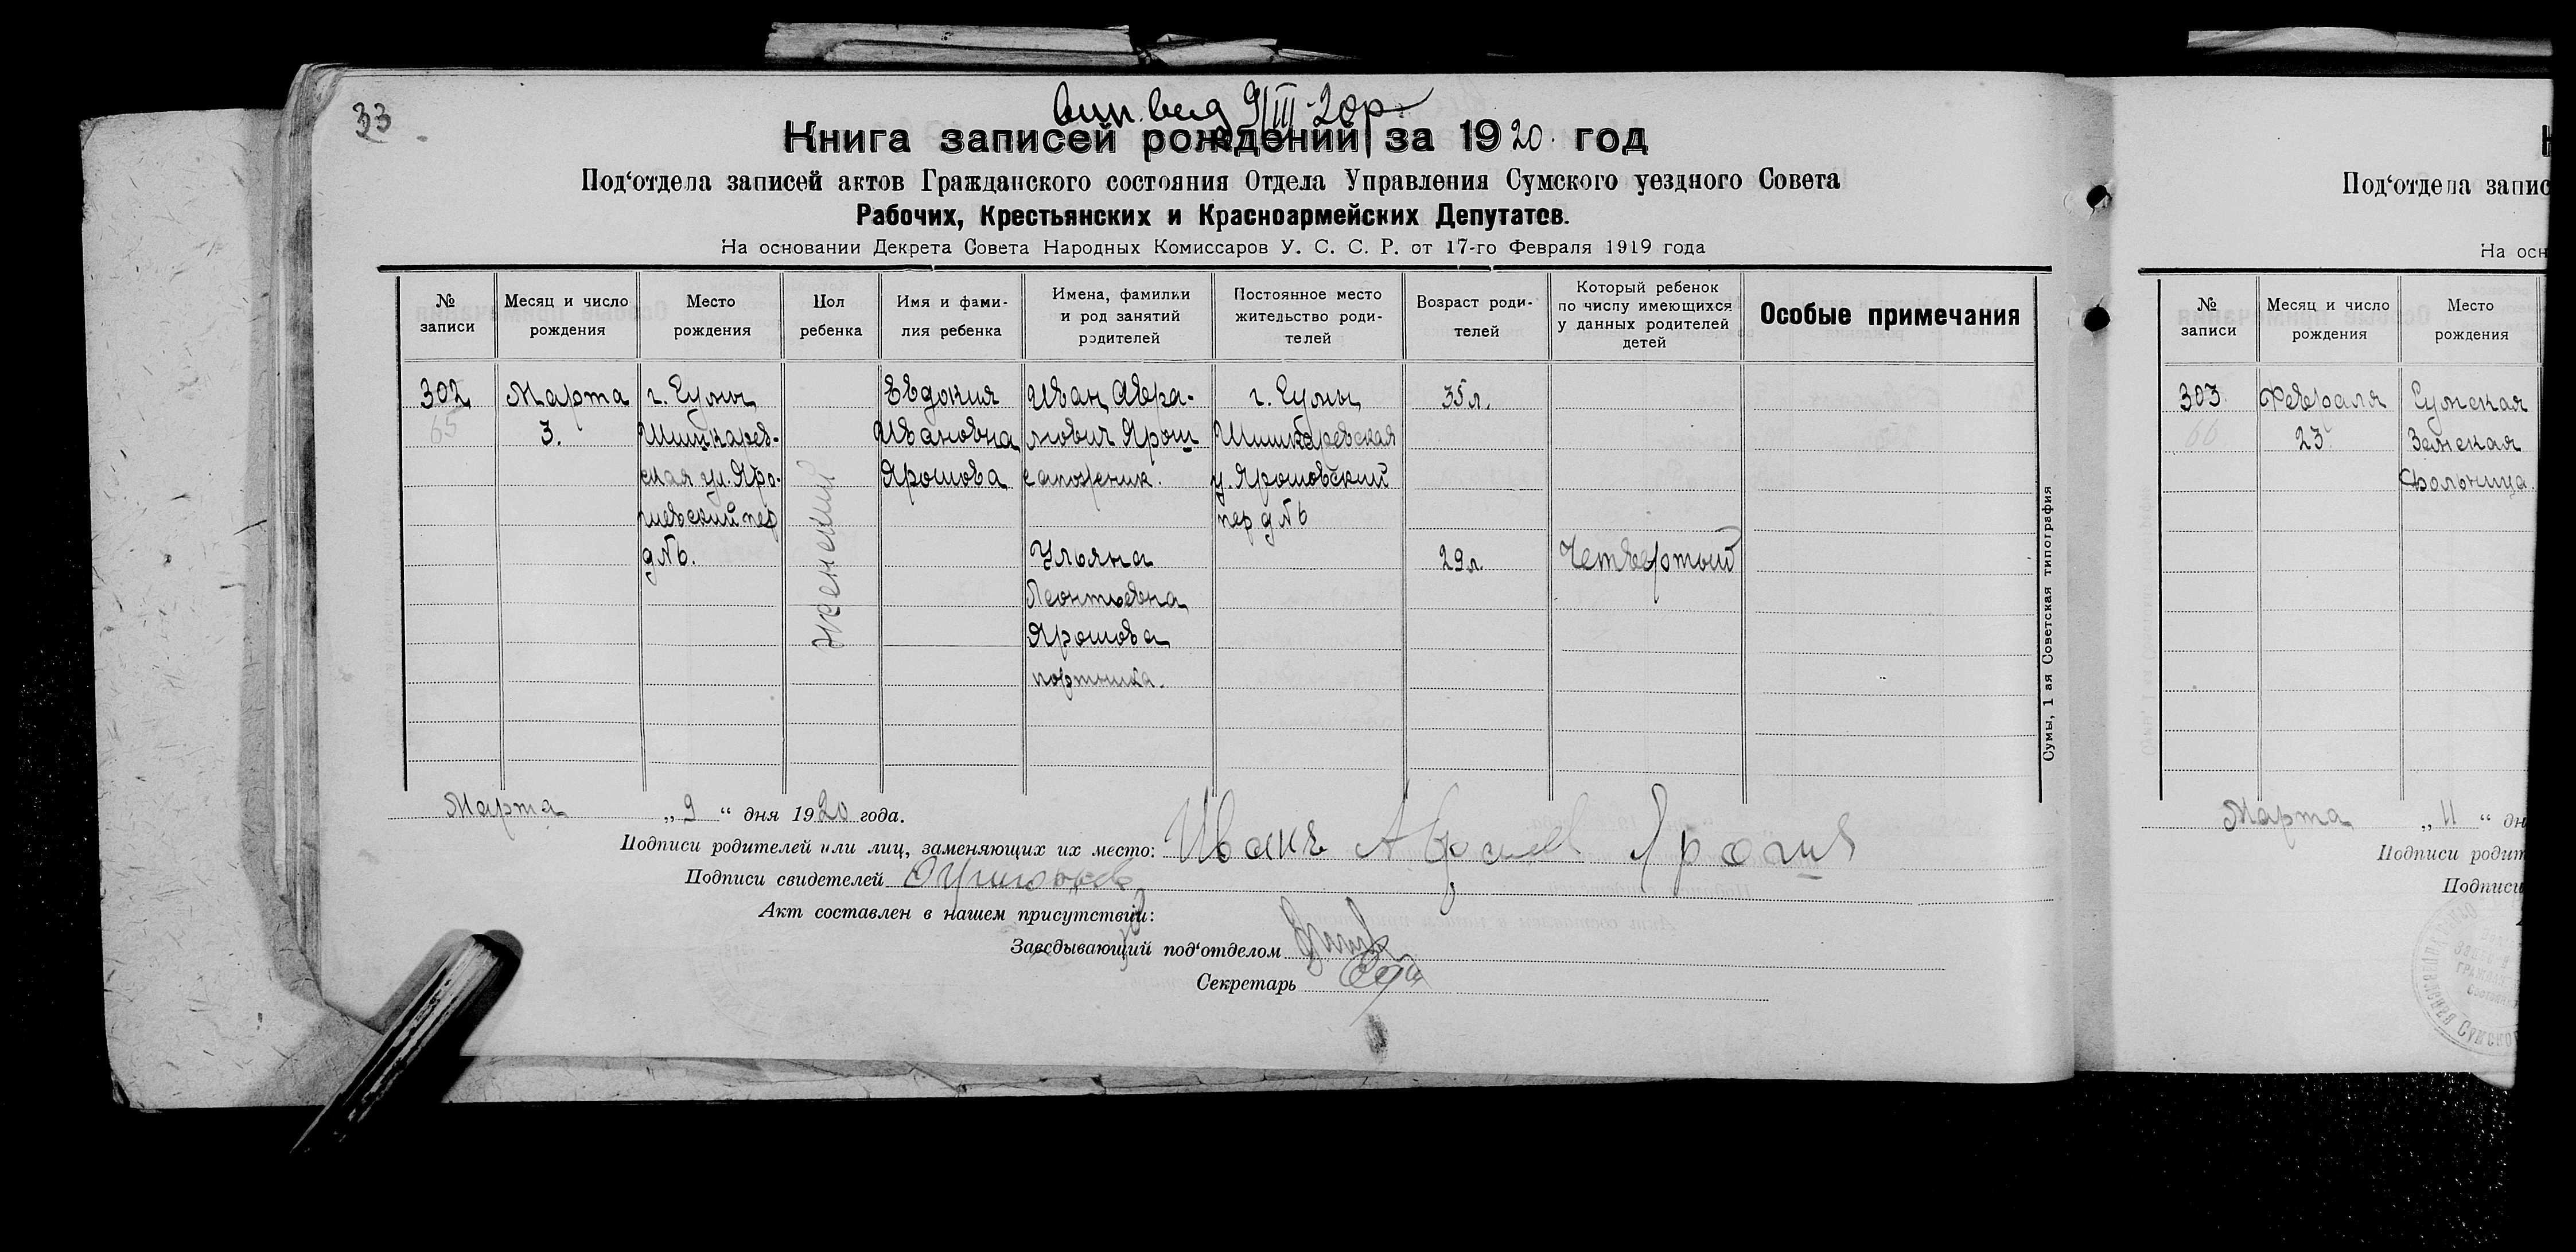 33
вып. вид 9/III-20р.
Книга записей рождений за 1920. год
Под‘отдела записей актов Гражданского состояния Отдела Управления Сумского уездного Совета
Рабочих, Крестьянских и Красноармейских Депутатов.
На основании Декрета Совета Народных Комиссаров У. С. С. Р. от 17-го Февраля 1919 года
№ записи
Месяц и число рождения
Место рождения
Пол ребенка
Имя и фами-
лия ребенка
Имена, фамилии
и род занятий
родителей
Постоянное место
жительство роди-
телей
Возраст роди-
телей
Который ребенок
по числу имеющихся
у данных родителей
детей
Особые примечания
302
65
Марта
3.
г. Сумы
Шишкарев-
ская ул. Яро-
шевский пер
д №6.
женский
Евдокия
Ивановна
Ярошова
Иван Авра-
мович Ярош
сапожник.
Ульяна
Леонтьевна
Ярошова
портниха.
г. Сумы
Шишкаревская
у. Ярошовский
пер д №6
35 л.
29 л.
Четвертый
Марта „9“ дня 1920 года.
Подписи родителей или лиц, заменяющих их место: Иванъ Ярошъ
Подписи свидетелей
Акт составлен в нашем присутствии:
Заведывающий под‘отделом
Секретарь
Сумы, 1 ая Советская типография
Под‘отдела запис
На осн
№ записи
Месяц и число рождения
Место рождения
303
66
Февраля
23
Сумская
Земская
больница.
Марта „11“ дн
Подписи родит
Подписи